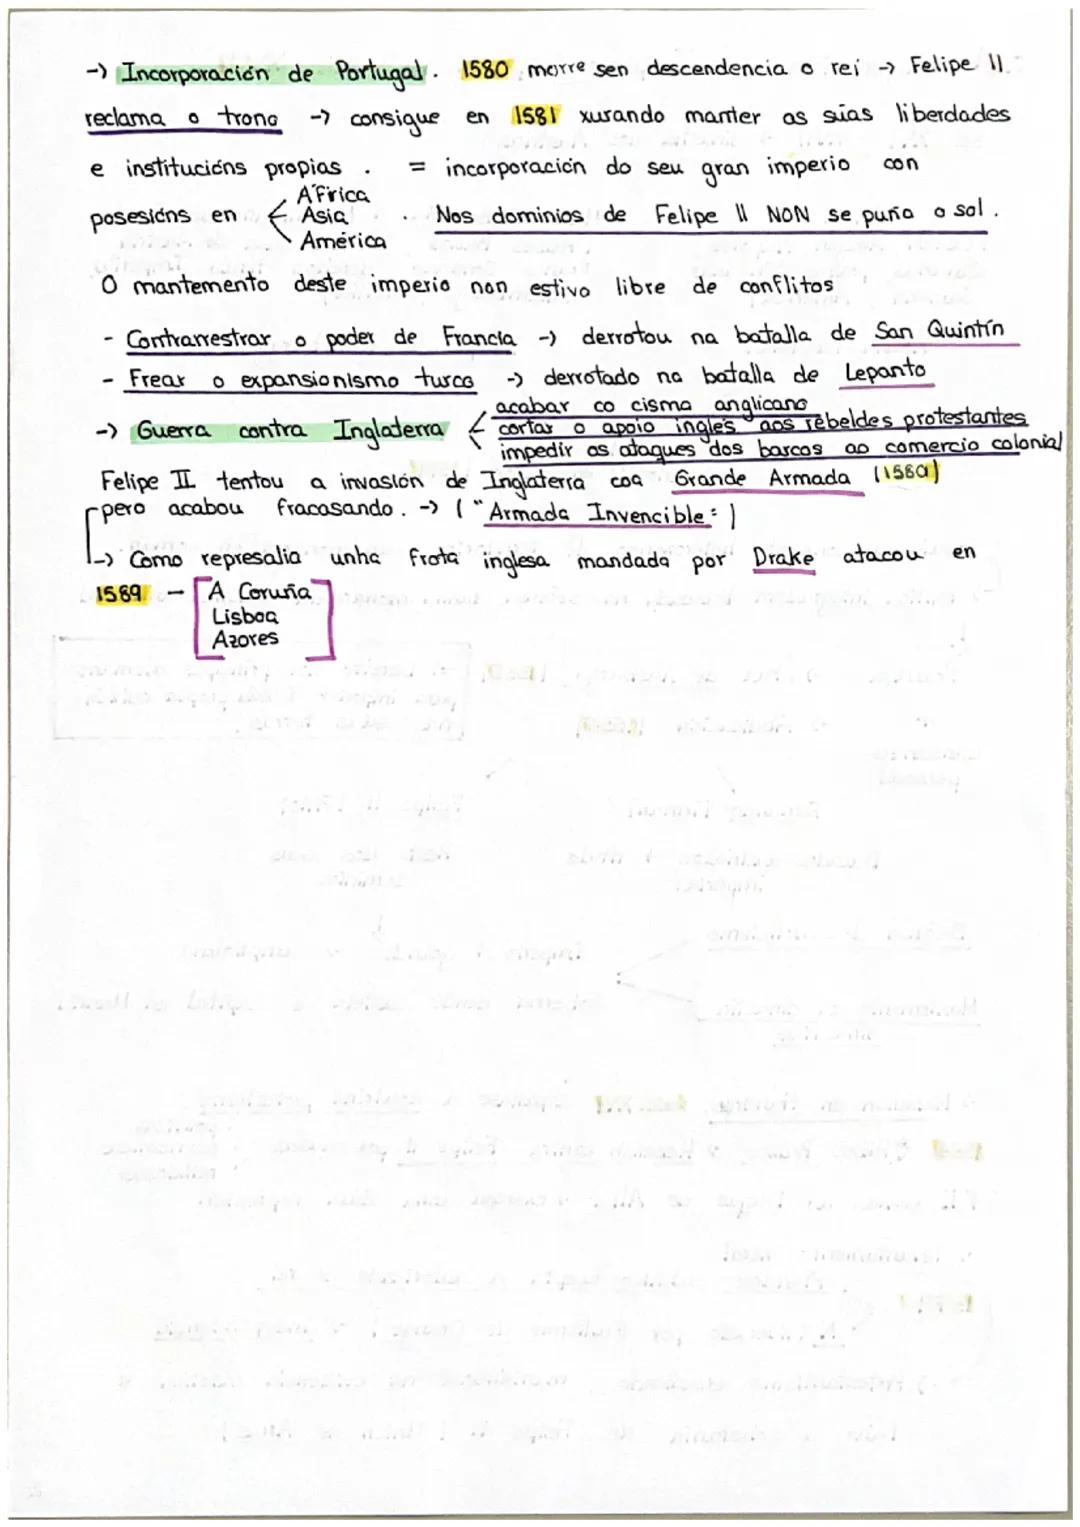 -> Incorporación de Portugal. 1580 morre sen descendencia o rei -> Felipe II
reclama o trono -> consigue en 1581 xurando manter as súas liberdades
e institucións propias. = incorporación do seu gran imperio con
posesións en África
Asia
América
. Nos dominios de Felipe II NON se puña o sol.
O mantemento deste imperio non estivo libre de conflitos
- Contrarrestrar o poder de Francia -> derrotou na batalla de San Quintín
- Frear o expansionismo turco -> derrotado na batalla de Lepanto
-> Guerra contra Inglaterra
acabar co cisma anglicano
cortar o apoio inglés aos rebeldes protestantes
impedir os ataques dos barcos ao comercio colonial
Felipe II tentou a invasión de Inglaterra coa Grande Armada
pero acabou fracasando. -> ("Armada Invencible")
-> Como represalia unha frota inglesa mandada por Drake atacou en
1589 - A Coruña
Lisboa
Azores